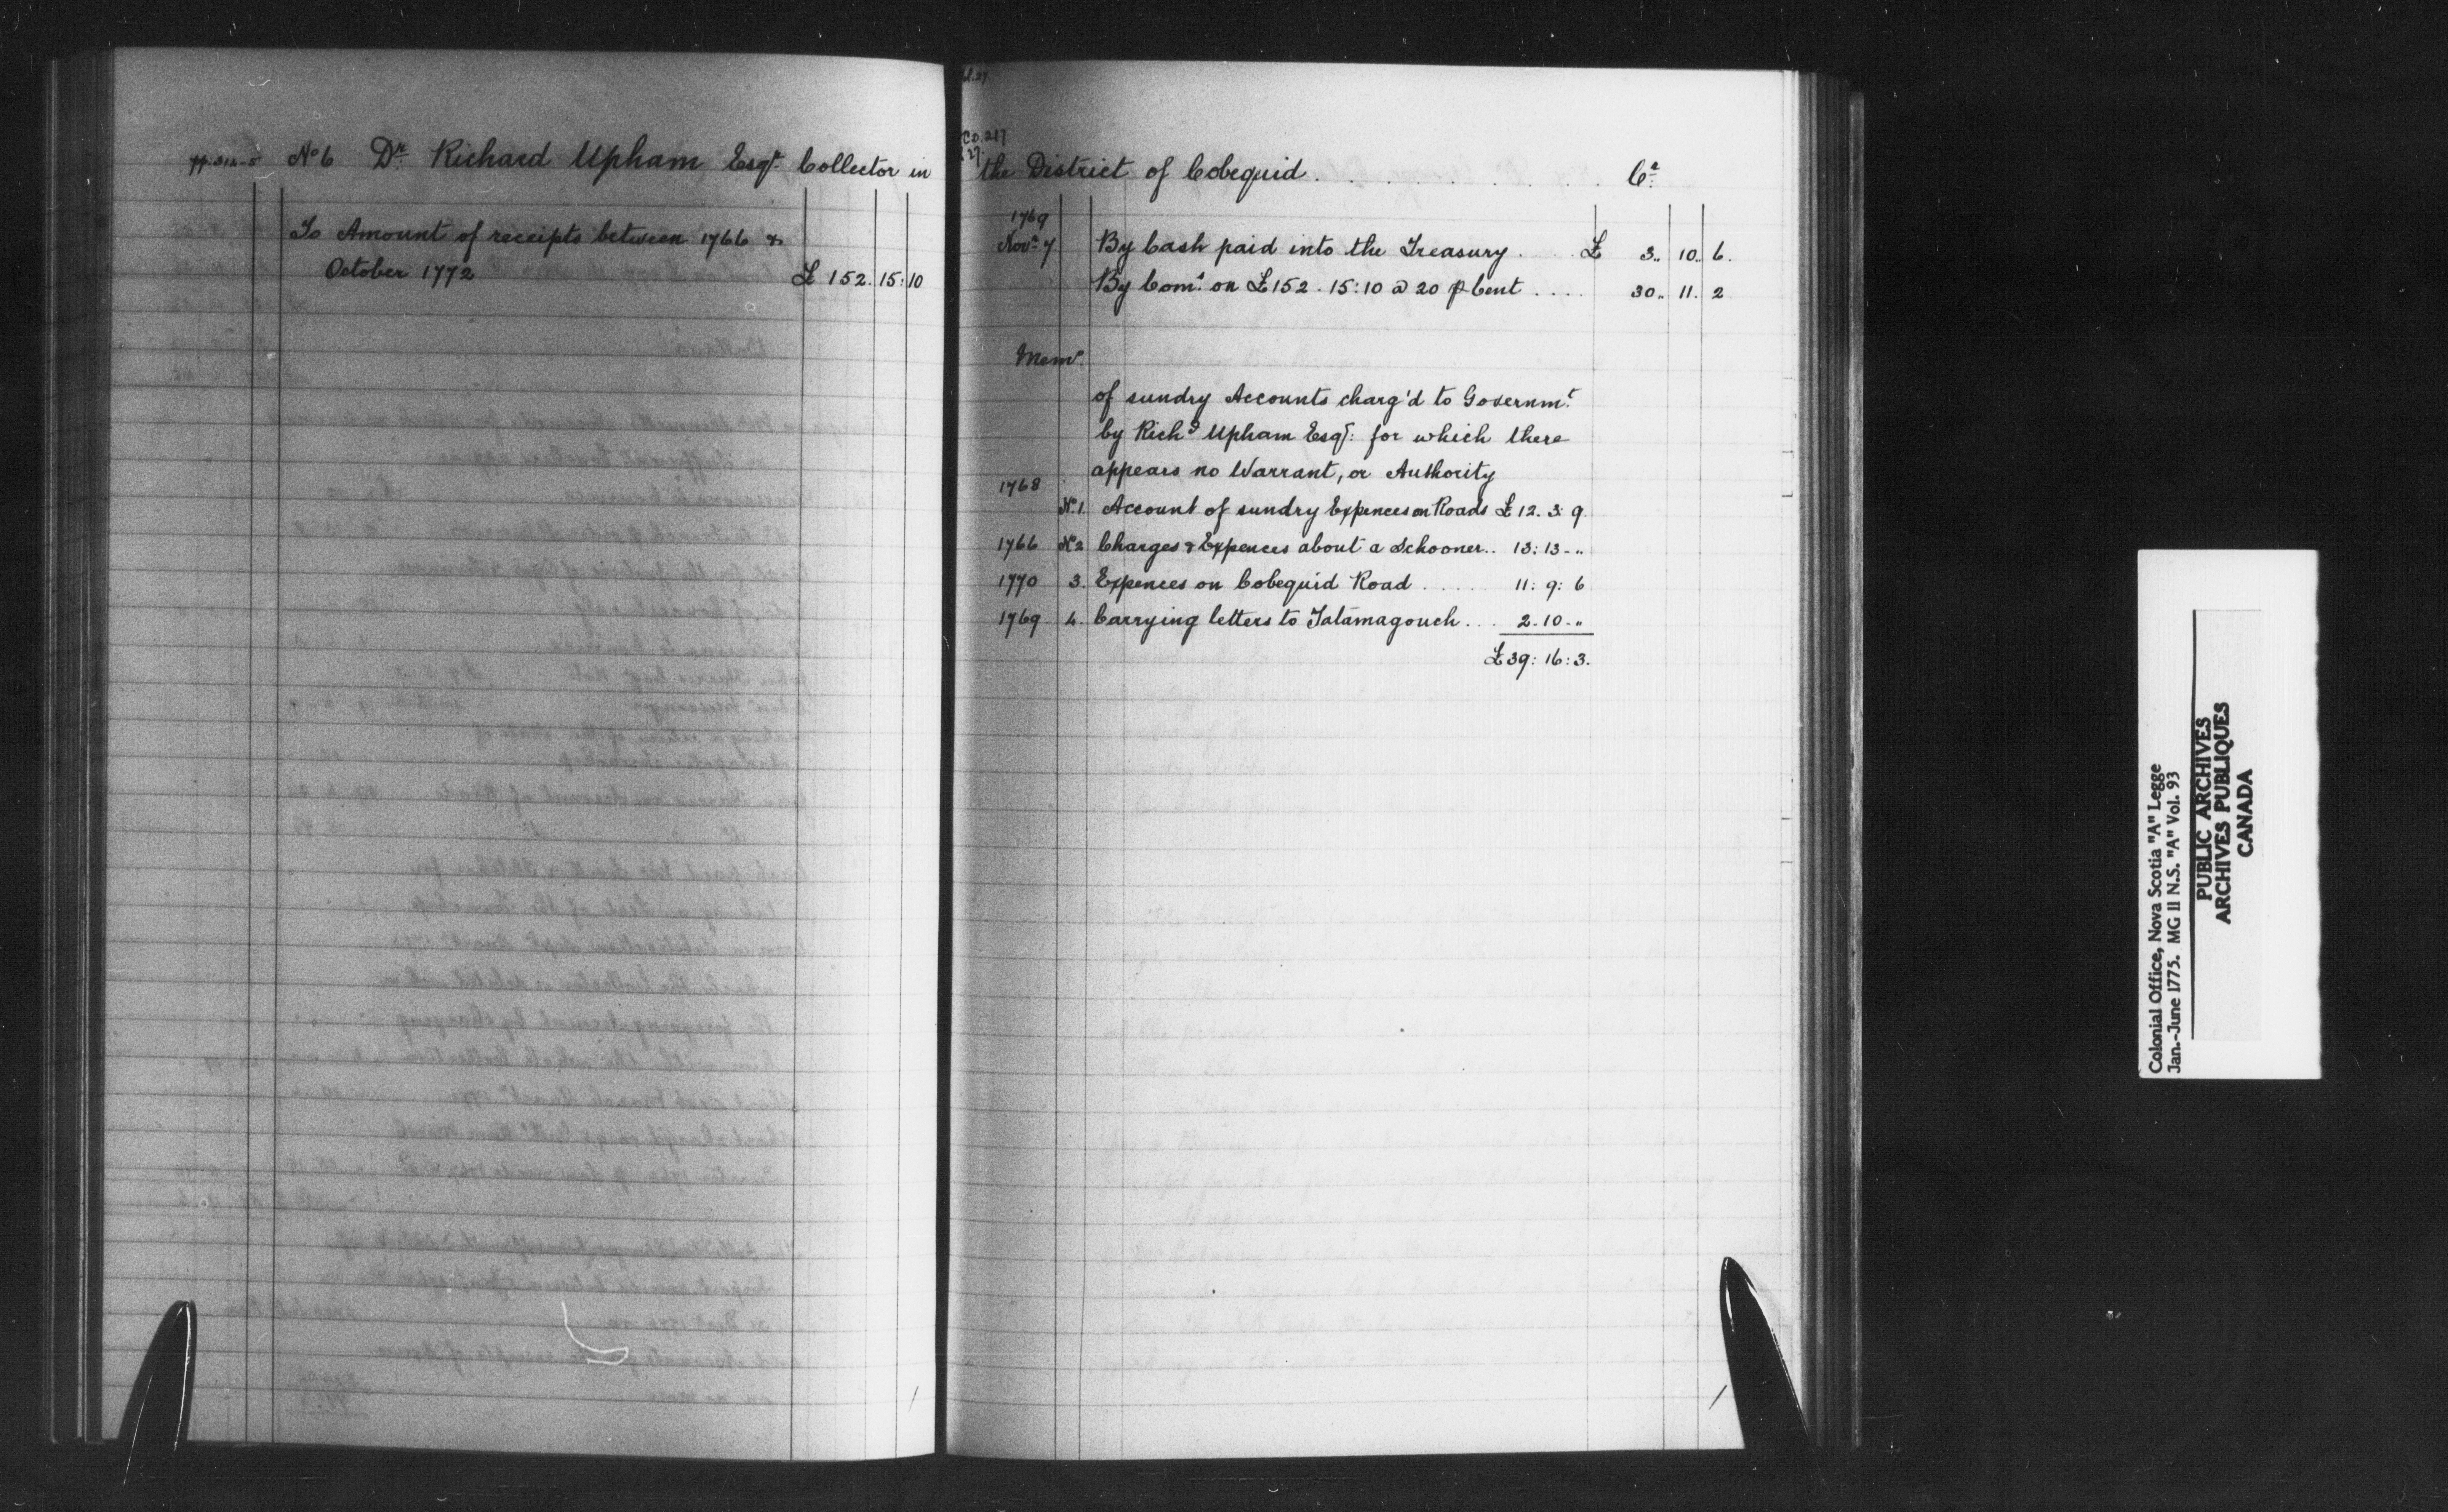 pp. 314-5 No 6 Dr. Richard Upham Esqr. Collector in
To Amount of receipts between 1766 &
October 1772 £ 152. 15: 10
C.O. 217
the District of Cobequid . . . . . . . . . . . . Cr.
1769
Novr. 7 By Cash paid into the Treasury . . . £ 3.. 10.. 6.
By Comn. on £152. 15: 10 @ 20 p Cent . . . . 30.. 11. 2
Memo.
of sundry Accounts charg'd to Governmt.
by Richd. Upham Esqr: for which there
appears no Warrant, or Authority
1768
No. 1. Account of sundry Expences on Roads £ 12. 3: 9.
1766 No 2 Charges & Expences about a Schooner.. 13: 13 - „
1770 3. Expences on Cobequid Road . . . . . . 11: 9: 6
1769 4. Carrying letters to Tatamagouch . . . 2. 10 - „
£ 39: 16: 3.
Colonial Office, Nova Scotia "A" Legge
Jan.-June 1775. MG 11 N.S. "A" Vol. 93
PUBLIC ARCHIVES
ARCHIVES PUBLIQUES
CANADA